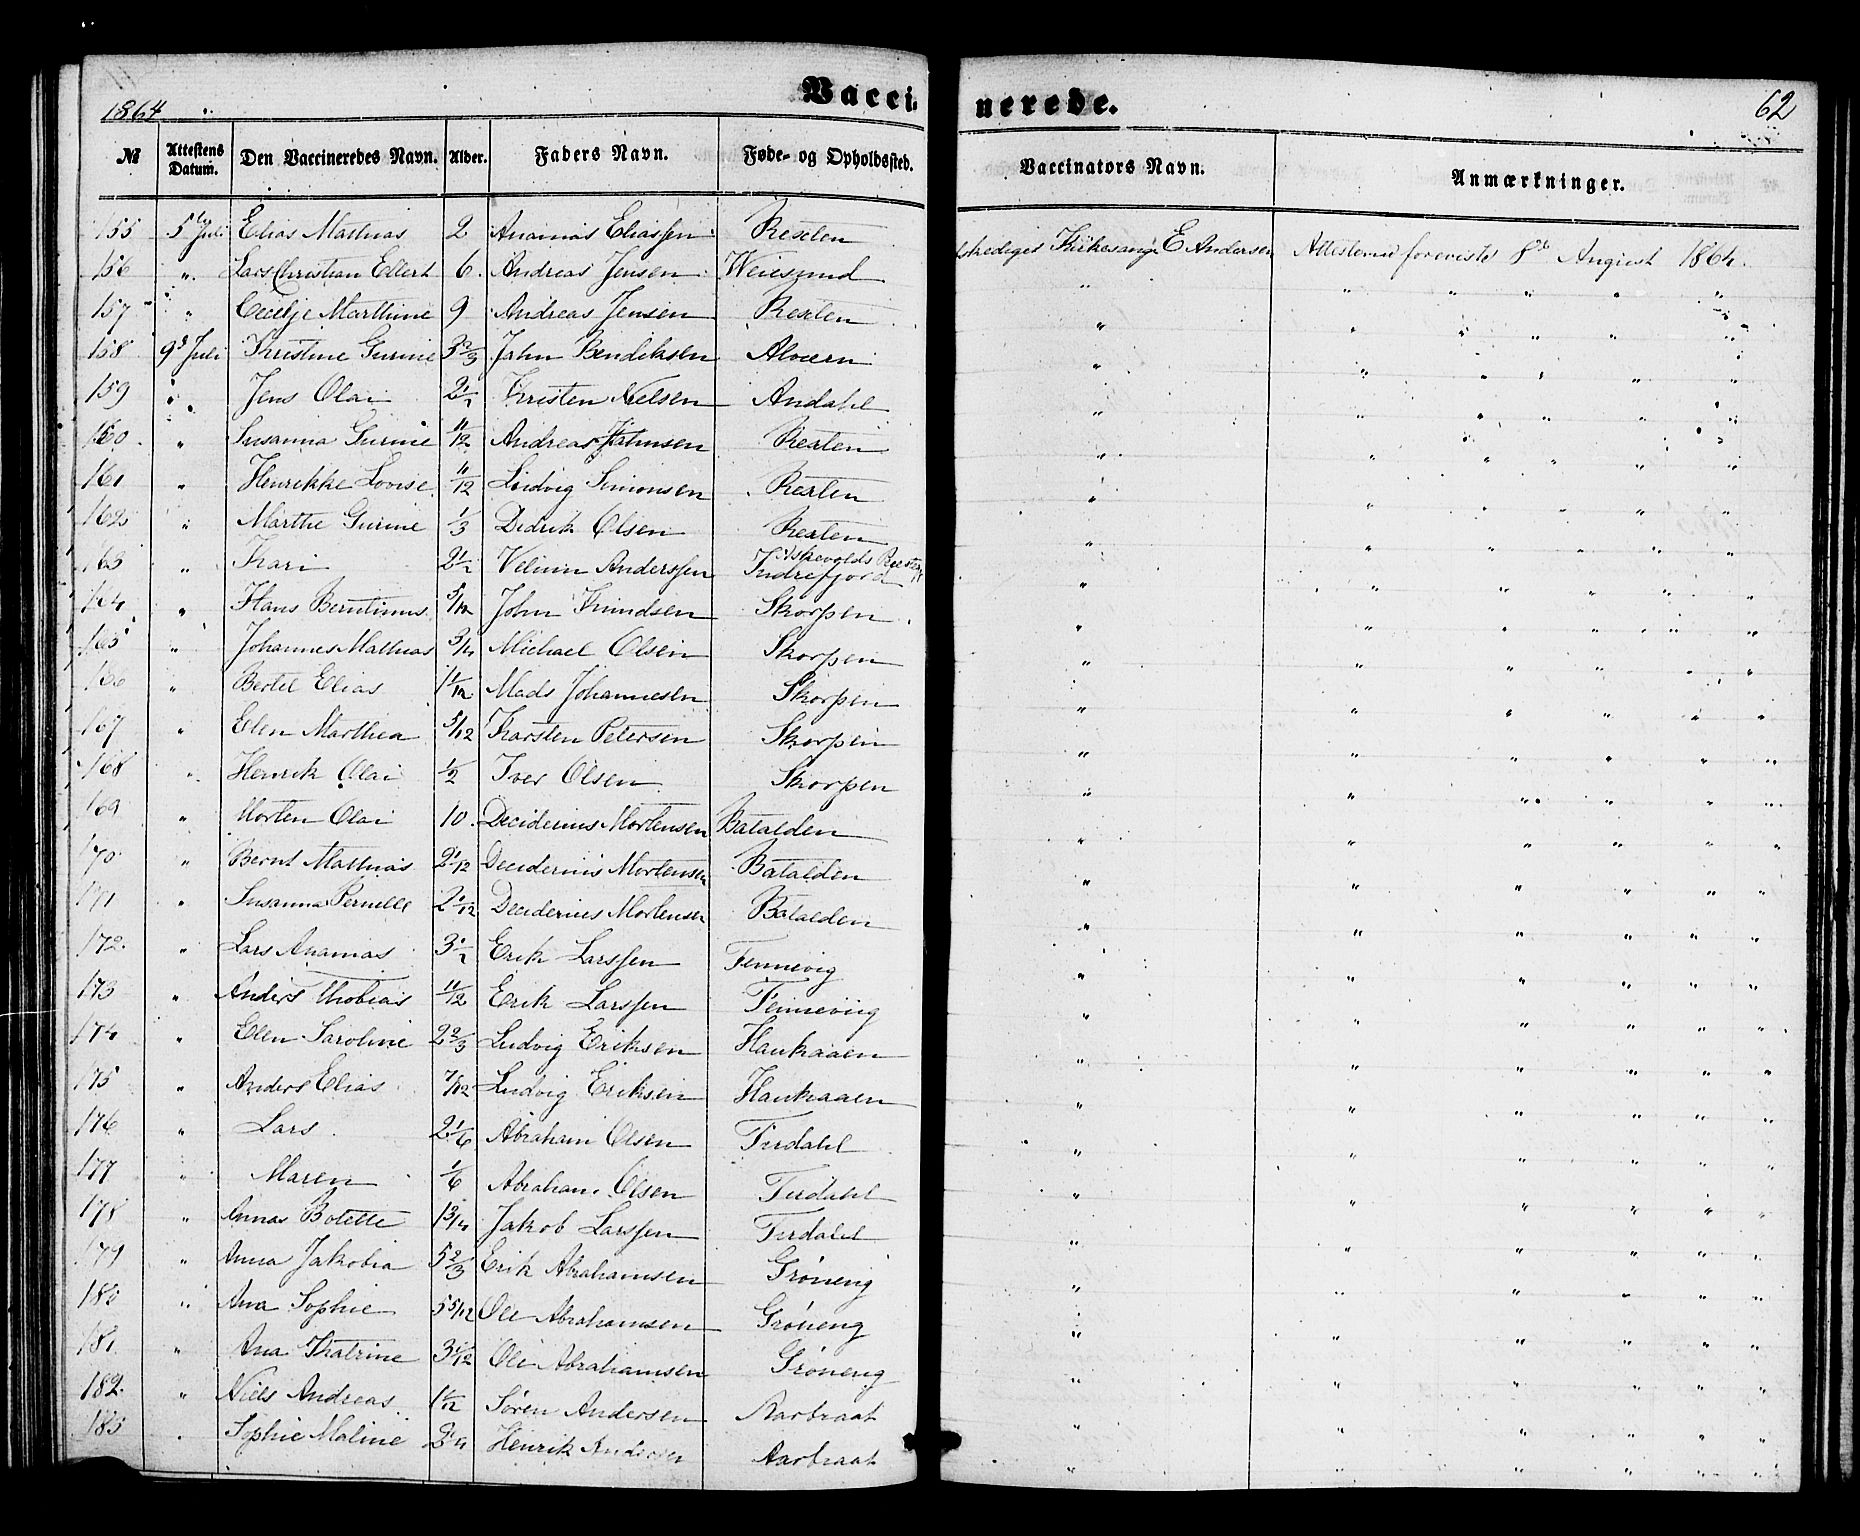 1864
Vacci- nerede. 62
№ Attestens Datum. Den Vaccineredes Navn. Alder. Faders Navn. Føde- og Opholdssted. Vaccinators Navn. Anmærkninger.
155 5te Juli Elias Mathias 2 Ananias Eliassen Rexten Kirkesanger E Andersen Attesterne foreviste 8de August 1864.
156 " Lars Christian Ellert 6. Andreas Jensen Weiesund " " " " "
157 " Cecilje Marthine 9 Andreas Jensen Rexten " " " " "
158 9de Juli Kristine Gurine 3 2/3 John Bendiksen Alværn " " " " "
159 " Jens Olai 2 1/2 Kristen Nielsen Andahl " " " " "
160. " Susanna Gurine 11/12 Andreas Johnsen Rexten " " " " "
161 " Henrikke Lovise 11/12 Ludvig Simonsen Rexten " " " " "
162 " Marthe Gurine 1/3 Didrik Olsen Rexten " " " " "
163 " Kari 2 1/2 Velum Anderssen Askevolds Præsteg Indrefjord " " " " "
164 " Hans Berntinus 5/12 John Knudsen Skorpen " " " " "
165 " Johannes Mathias 3/4 Michael Olsen Skorpen " " " " "
166 " Bertel Elias 1 1/12 Mads Johannesen Skorpen " " " " "
167 " Elen Marthea 5/12 Karsten Petersen Skorpen " " " " "
168 " Henrik Olai 1/2 Iver Olsen Skorpen " " " " "
169 " Morten Olai 10. Deciderius Mortensen Batalden " " " " "
170 " Bernt Mathias 2 1/12 Deciderius Mortensen Batalden " " " " "
171 " Susanna Pernelle 2 1/12 Deciderius Mortensen Batalden " " " " "
172. " Lars Ananias 3 1/2 Erik Larssen Fennevig " " " " "
173 " Anders Thobias 11/12 Erik Larssen Fenneviig " " " " "
174 " Elen Karoline 2 2/3 Ludvig Eriksen Haukaaen " " " " "
175 " Anders Elias 7/12 Ludvig Eriksen Haukaaen " " " " "
176 " Lars 2 1/6 Abraham Olsen Tirdahl " " " " "
177 " Maren 1/6 Abraham Olsen Tirdahl " " " " "
178 " Annas Botette 1 3/4 Jakob Larssen Tirdahl " " " " "
179 " Anna Jakobia 5 2/3 Erik Abrahamsen Grøneng " " " " "
180 " Ana Sophie 5 5/12 Ole Abrahamsen Grøneng " " " " "
181 " Ana Katrine 3 1/12 Ole Abrahamsen Grøneng " " " " "
182. " Niels Andreas 1 1/12 Søren Andersen Aarbraat " " " " "
183 " Sophie Maline 3 1/4 Henrik Andersen Aarbraat " " " " "